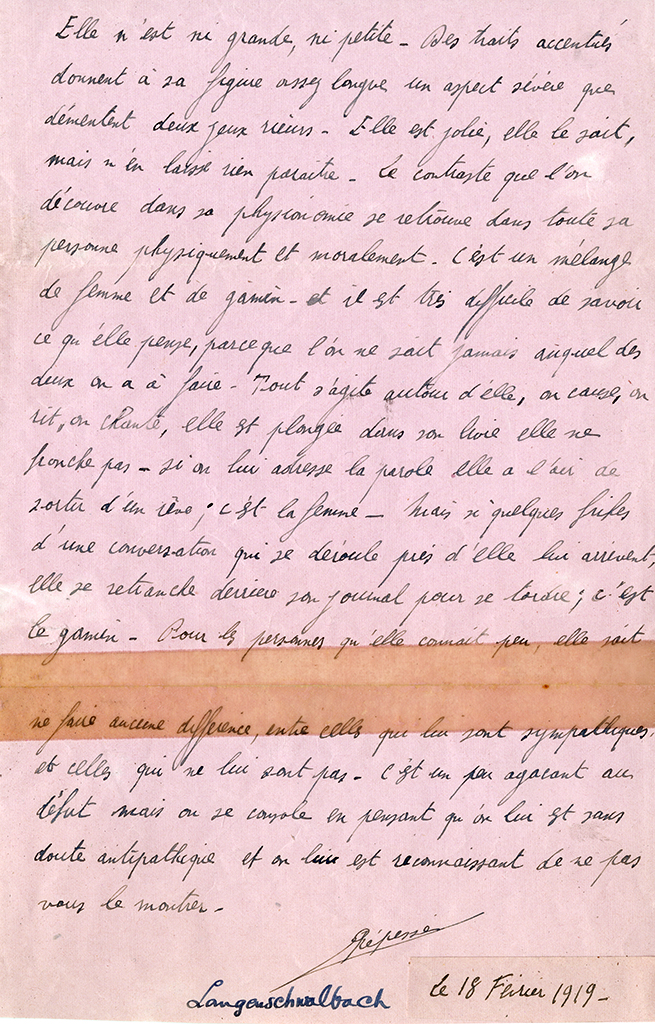 Elle n'est ni grande, ni petite - Des traits accentués
donnent à sa figure assez longue un aspect sévère que
démentent deux yeux rieurs - Elle est jolie, elle le sait,
mais n'en laisse rien paraître - Le contraste que l'on
découvre dans sa physionomie se retrouve dans toute sa
personne physiquement et moralement - C'est un mélange
de femme et de gamin - et il est très difficile de savoir
ce qu'elle pense, parceque l'on ne sait jamais auquel des
deux on a à faire - Tout s'agite autour d'elle, on cause, on
rit, on chante, elle est plongée dans son livre elle ne
bronche pas - si on lui adresse la parole elle a l'air de
sortir d'un rêve ; c'est la femme - Mais si quelques bribes
d'une conversation qui se déroule près d'elle lui arrivent,
elle se retranche derrière son journal pour se tordre ; c'est
le gamin - Pour les personnes qu'elle connait peu, elle sait
ne faire aucune différence, entre celles qui lui sont sympathiques,
et celles qui ne lui sont pas - C'est un peu agaçant au
début mais on se console en pensant qu'on lui est sans
doute antipathique et on lui est reconnaissant de ne pas
vous le montrer -
Langenschwalbach
le 18 Février 1919 -